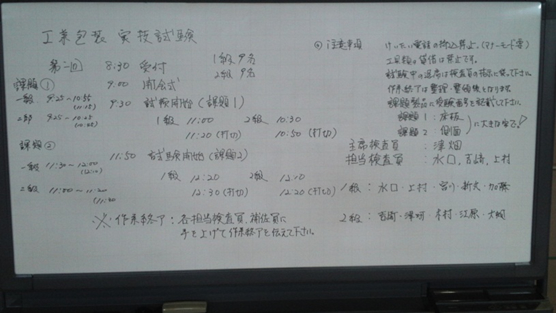 工業包装 実技試験
第一回 8:30 受付 1級 9名
2級 9名
課題① 9:00 開会式
一級 9:25~10:55
9:30 試験開始 (課題1)
2級 9:25~10:25
1級 11:00 2級 10:30
11:20 (打切) 10:50 (打切)
課題②
11:50 試験開始 (課題2)
一級 11:30~12:00
1級 12:20 2級 12:10
12:30 (打切) 12:20 (打切)
2級 11:00~11:20
※・作業終了:各担当検査員、補佐員に
手を上げて作業終了を伝えて下さい。
◎ 注意事項
けいたい電話の持込禁止。(マナーモード等)
工具類の貸借は禁止です。
試験中の退席は検査員の指示に従って下さい。
作業終了は整理・整頓後となります。
課題製品に受験番号を記載して下さい。
課題1:床板
課題2:側面
に大きな字で!
主席検査員:津畑
担当検査員:水口、吉崎、上村
1級:水口・上村・宮川・新太・加藤
2級:吉崎・澤明・木村・江原・大坂